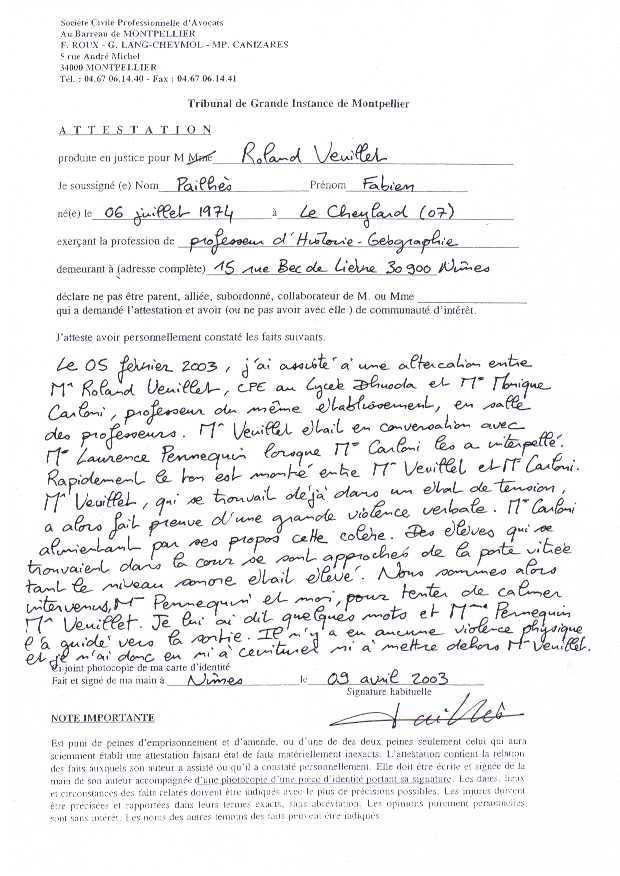 Société Civile Professionnelle d'Avocats
Au Barreau de MONTPELLIER
F. ROUX - G. LANG-CHEYMOL - MP. CANIZARES
5 rue André Michel
34000 MONTPELLIER
Tél. : 04.67 06.14.40 - Fax : 04.67 06.14.41
Tribunal de Grande Instance de Montpellier
ATTESTATION
produite en justice pour M Mme Roland Veuillet
Je soussigné (e) Nom Pailhès Prénom Fabien
né(e) le 06 juillet 1974 à Le Cheylard (07)
exerçant la profession de professeur d'Histoire-Géographie
demeurant à (adresse complète) 15 rue Bec de Lièvre 30 900 Nîmes
déclare ne pas être parent, alliée, subordonné, collaborateur de M. ou Mme
qui a demandé l'attestation et avoir (ou ne pas avoir avec elle ) de communauté d'intérêt.
J'atteste avoir personnellement constaté les faits suivants.
Le 05 février 2003, j'ai assisté à une altercation entre
Mr Roland Veuillet, CPE au Lycée Dhuoda et Me Monique
Carloni, professeur du même établissement, en salle
des professeurs. Mr Veuillet était en conversation avec
Me Laurence Pennequin lorsque Me Carloni les a interpellé.
Rapidement le ton est monté entre Mr Veuillet et Me Carloni.
Mr Veuillet, qui se trouvait déjà dans un état de tension,
a alors fait preuve d'une grande violence verbale. Me Carloni
alimentant par ses propos cette colère. Des élèves qui se
trouvaient dans la cour se sont approchés de la porte vitrée
tant le niveau sonore était élevé. Nous sommes alors
intervenus, Me Pennequin et moi, pour tenter de calmer
Mr Veuillet. Je lui ai dit quelques mots et Mme Pennequin
l'a guidé vers la sortie. Il n'y a eu aucune violence physique
et je n'ai donc eu ni à ceinturer ni à mettre dehors Mr Veuillet.
Ci-joint photocopie de ma carte d'identité
Fait et signé de ma main à Nîmes le 09 avril 2003
Signature habituelle
Pailhès
NOTE IMPORTANTE
Est puni de peines d'emprisonnement et d'amende, ou d'une de des deux peines seulement celui qui aura
sciemment établi une attestation faisant état de faits matériellement inexacts. L'attestation contient la relation
des faits auxquels son auteur a assisté ou qu'il a constaté personnellement. Elle doit être écrite et signée de la
main de son auteur accompagnée d'une photocopie d'une pièce d'identité portant sa signature. Les dates, lieux
et circonstances des faits relatés doivent être indiqués avec le plus de précisions possibles. Les injures doivent
être précisées et rapportées dans leurs termes exacts, sans abréviation. Les opinions purement personnelles
sont sans intérêt. Les noms des autres témoins des faits peuvent être indiqués